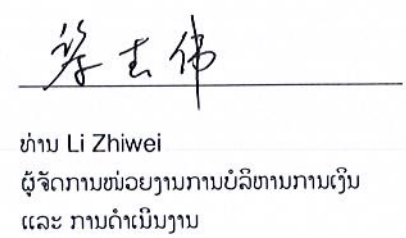 黎志伟
ທ່ານ Li Zhiwei
ຜູ້ຈັດການໜ່ວຍງານການບໍລິຫານການເງິນ
ແລະ ການດຳເນີນງານ